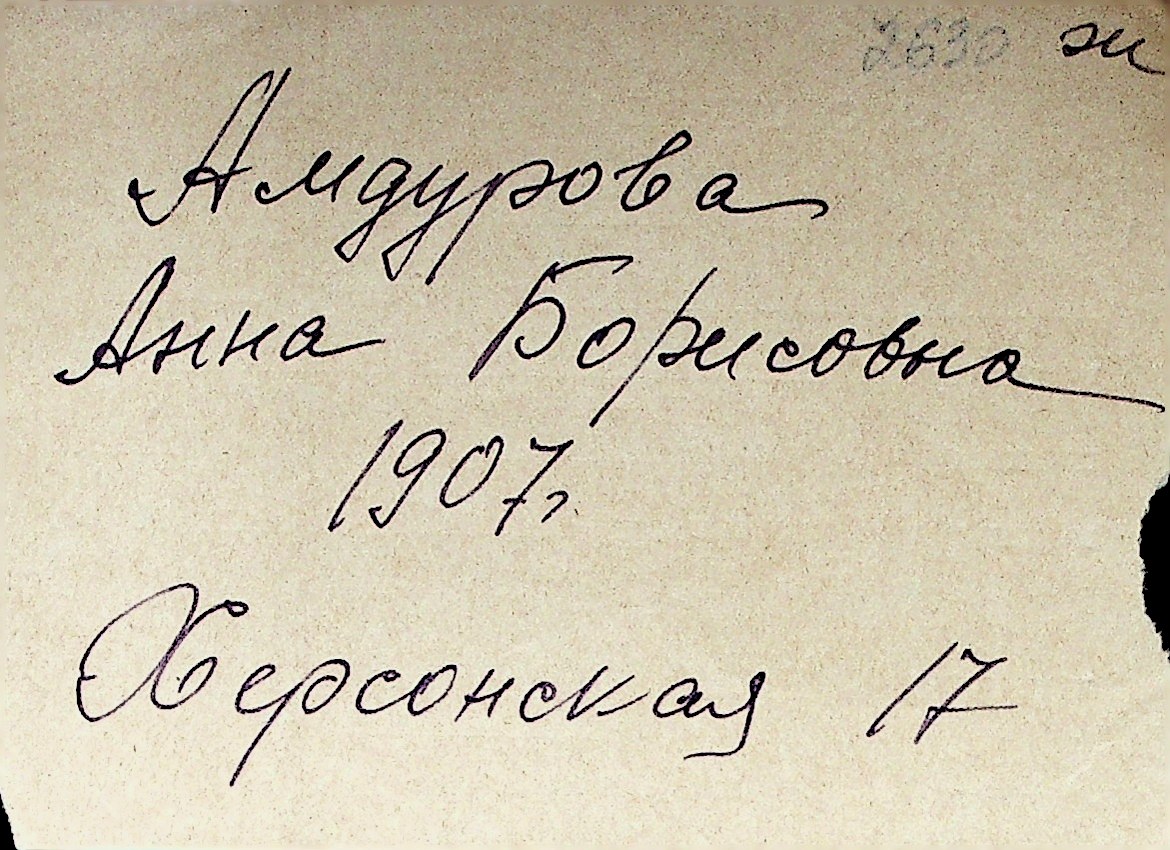 2630 ж
Амдурова
Анна Борисовна
1907г
Херсонская 17